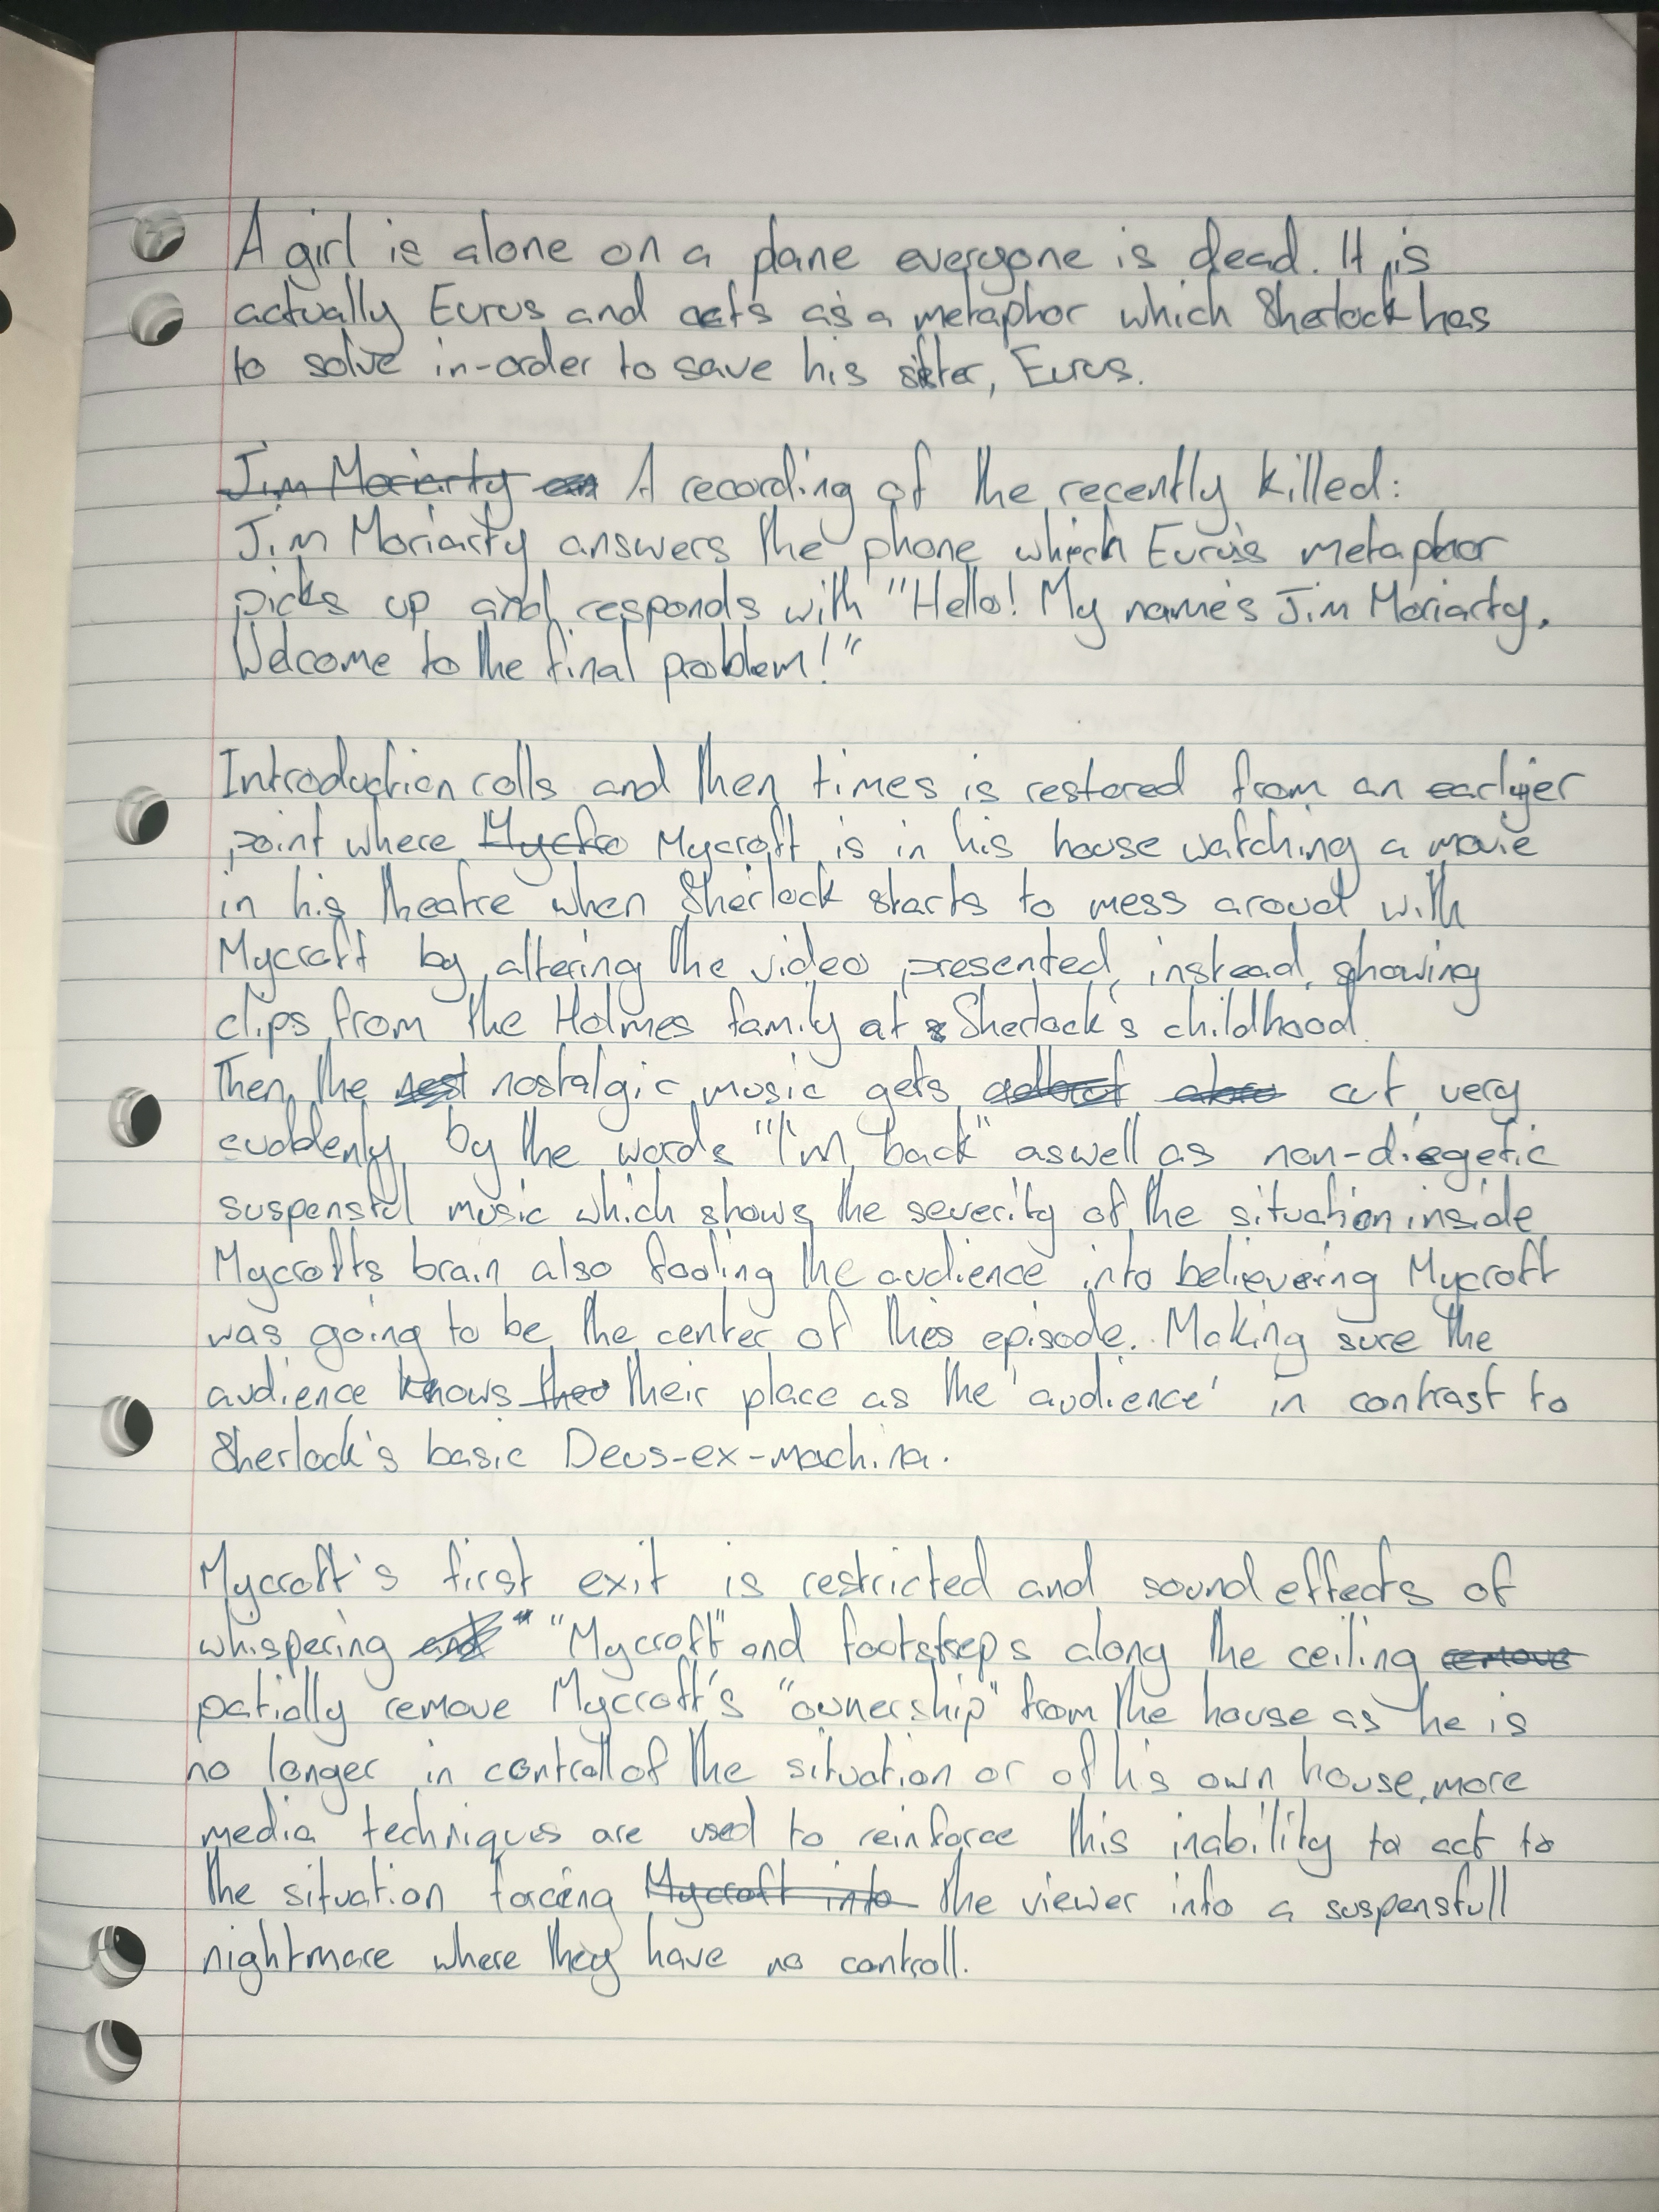 A girl is alone on a plane everyone is dead. It is
actually Eurus and acts as a metaphor which Sherlock has
to solve in-order to save his sister, Eurus.
Jim Moriarty A recording of the recently killed:
Jim Moriarty answers the phone which Eurus's metaphor
picks up and responds with "Hello! My name's Jim Moriarty.
Welcome to the final problem!"
Introduction rolls and then times is restored from an earlyier
point where Mycfro Mycroft is in his house watching a movie
in his theatre when Sherlock starts to mess aroud with
Mycroft by altering the video presented, instead, showing
clips from the Holmes family at Sherlock's childhood.
Then the nostalgic music gets cut very
suddenly by the words "I'm back" aswell as non-diegetic
suspensful music which shows the severity of the situation inside
Mycrofts brain also fooling the audience into believeing Mycroft
was going to be the center of this episode. Making sure the
audience knows their place as the 'audience' in contrast to
Sherlock's basic Deus-ex-machina.
Mycroft's first exit is restricted and sound effects of
whispering and "Mycroft" and footsteps along the ceiling remove
patially remove Mycroft's "ownership" from the house as he is
no longer in controll of the situation or of his own house, more
media techniques are used to reinforce this inability to act to
the situation forcing Mycroft into the viewer into a suspensfull
nightmare where they have no controll.